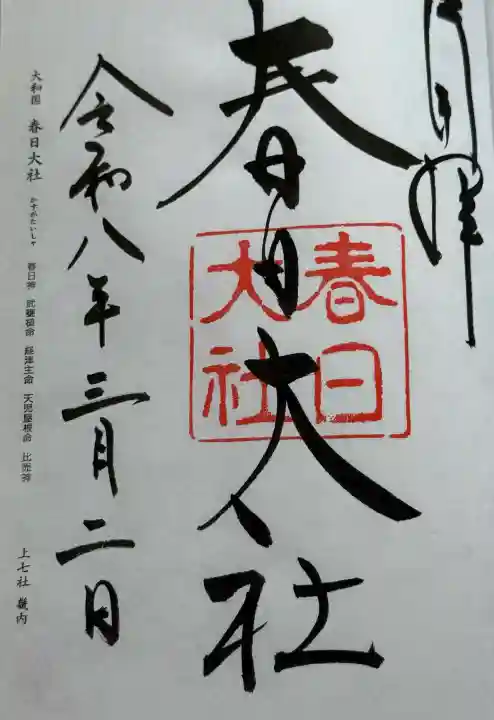 奉拝
春日大社
春日
大社
令和八年三月二日
大和国 春日大社 かすがたいしゃ 春日神 武甕槌命 経津主命 天児屋根命 比売神 上七社 畿内